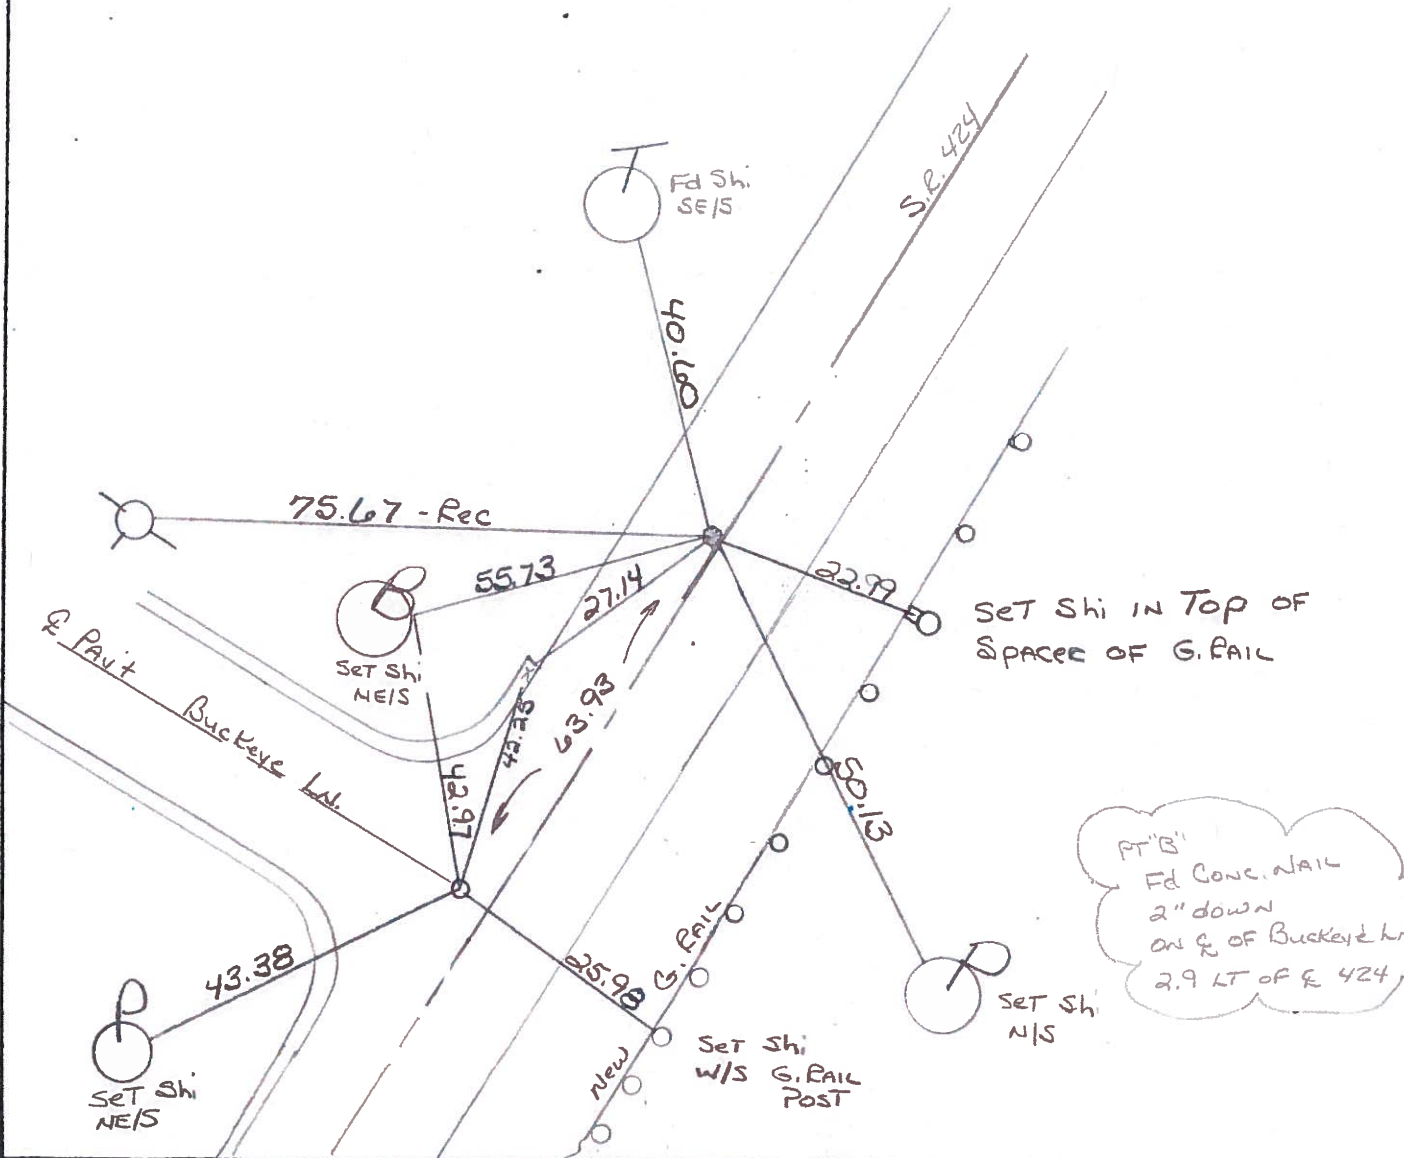 S.R. 424
Fd Shi
SE/S
40.60
75.67 - Rec
55.73
27.14
22.99
SeT Shi IN Top OF
SpAcer OF G.RAIL
SeT Shi
NE/S
℄ PAv't Buckeye LN.
63.93
42.25
42.97
50.13
PT "B"
Fd CONC. NAIL
2" down
ON ℄ OF Buckeye Ln
2.9 LT OF ℄ 424
43.38
25.98
New G. RAIL
SeT Shi
N/S
SeT Shi
W/S G.RAIL
POST
SeT Shi
NE/S